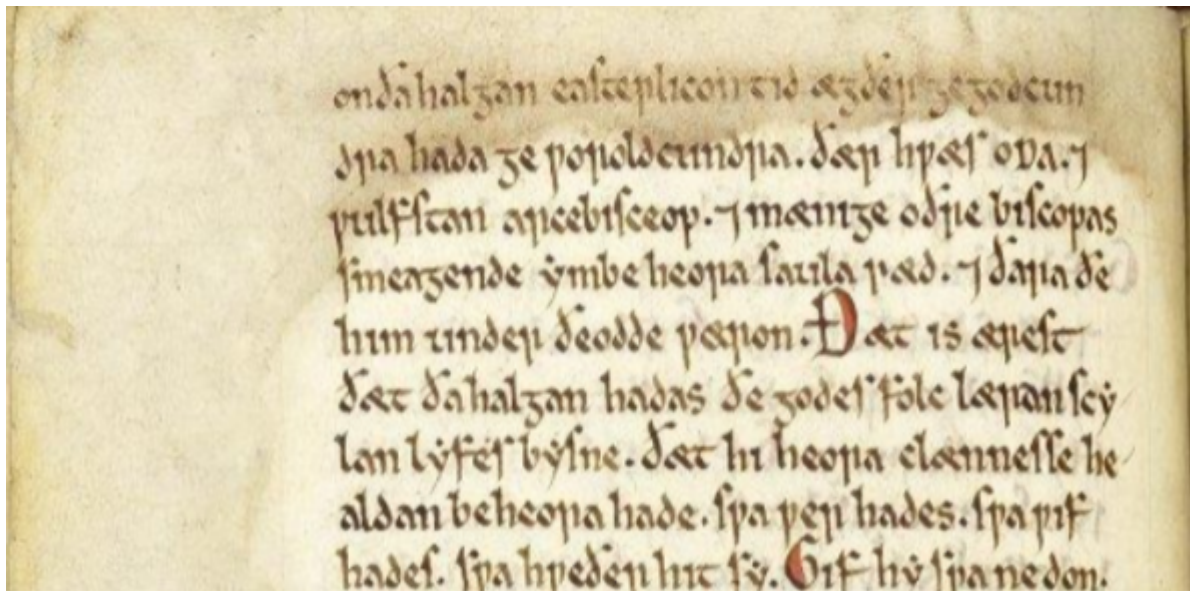 on ða halgan easterlicon tid ægðer ge godcun
dra hada ge ƿoroldcundra. ðær hƿæs oda. ⁊
ƿulfstan arcebisceop. ⁊ mænige oðre biscopas
smeagende ẏmbe heora saula ræd. ⁊ ðara ðe
him under ðeodde ƿæron. Ðæt is ærest
ðæt ða halgan hadas ðe godes folc læran scẏ
lan lẏfes bẏsne. ðæt hi heora clænnesse he
aldan be heora hade. sƿa ƿer hades. sƿa ƿif
hades. sƿa hƿeðer hit sẏ. Gif hẏ sƿa ne don.